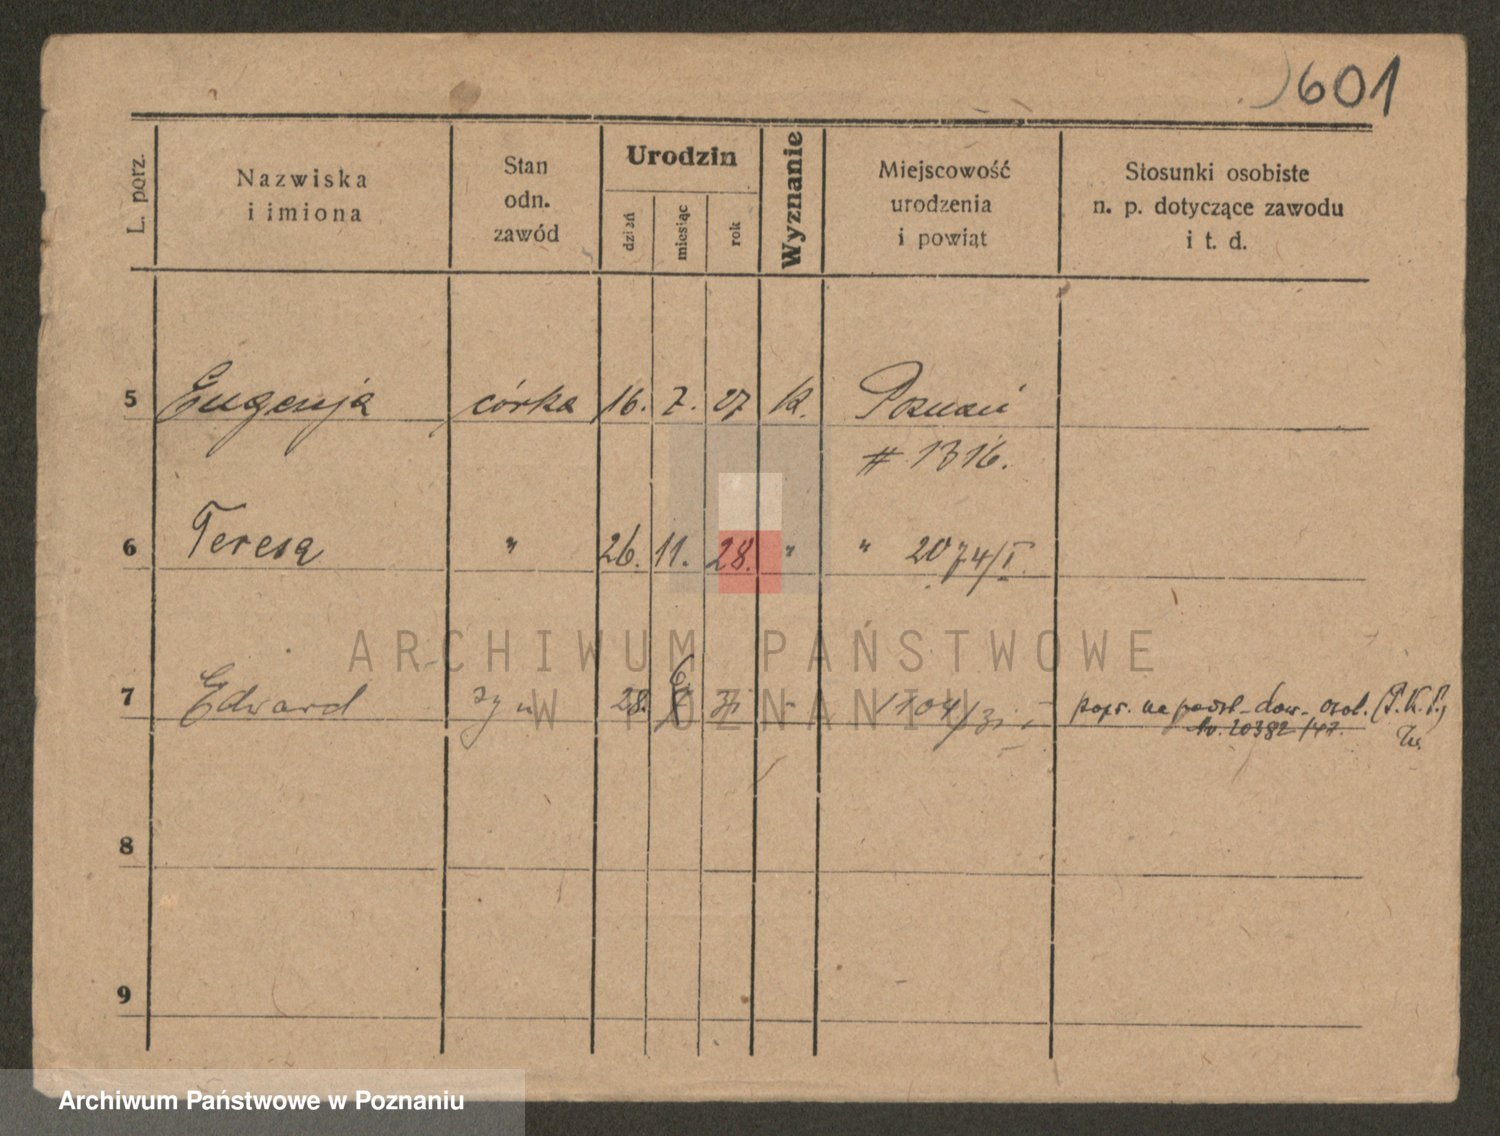 601
L. porz.
Nazwiska
i imiona
Stan
odn.
zawód
Urodzin
dzień
miesiąc
rok
Wyznanie
Miejscowość
urodzenia
i powiąt
Stosunki osobiste
n. p. dotyczące zawodu
i t. d.
5 Eugenja córka 16. 7. 27 K. Poznań
# 1316.
6 Teresa " 26. 11. 28. " " 2074/I.
7 Edward syn 28. 6 31 - 1104/31
popr. na podst. dow. osob. (P.K.P.)
No. 20382/47.
8
9
ARCHIWUM PAŃSTWOWE
W POZNANIU
Archiwum Państwowe w Poznaniu